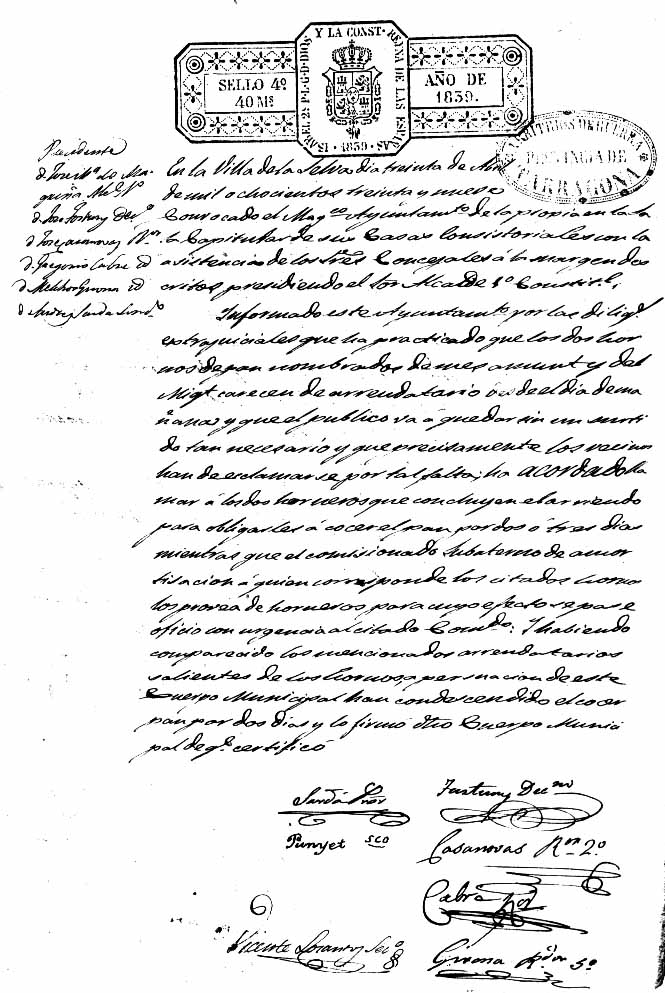 ISABEL 2ª P. L. G. D. DIOS Y LA CONST. REYNA DE LAS ESPAÑAS
SELLO 4º
40 Ms
AÑO DE
1839.
1839
ARBITRIOS DE GUERRA
PROVINCIA DE
TARRAGONA
Presidente
d. Gregorio Cabré
d. Melchor Girona
En la Villa de la Selva dia treinta de
de mil ochocientos treinta y nueve
Convocado el Magco Ayuntamto de la propia en la Sa
la Capitular de sus Casas Consistoriales con la
asistencia de los Sres Concejales á la margen des
critos presidiendo el Sor Alcalde 1º Constitl,
Informado este Ayuntamto por las dilig
extrajuiciales que ha practicado que los dos hor
nos de pan nombrados de mes amunt y del
Migt carecen de arrendatario desde el dia de ma
ñana y que el publico vá á quedar sin un surti
do tan necesario y que precisamente los vecinos
han de esclamarse por tal falta; ha acordado lla
mar á los dos horneros que concluyen el arriendo
para obligarles á cocer el pan por dos ó tres dias
mientras que el comisionado subalterno de amor
tisacion á quien corresponde los citados hornos
los provea de horneros para cuyo efecto se pase
oficio con urgencia al citado Comdo: Y habiendo
comparecido los mencionados arrendatarios
salientes de los hornos a persuacion de este
Cuerpo Municipal han condescendido el cocer
pan por dos dias y lo firmó dho Cuerpo Munici
pal de q. certificó
Sardá Sror
Fortuny Decno
Punyet sco
Casanovas Ror 2º
Cabré Ror
Vicente Secº
Girona Rdor 5º